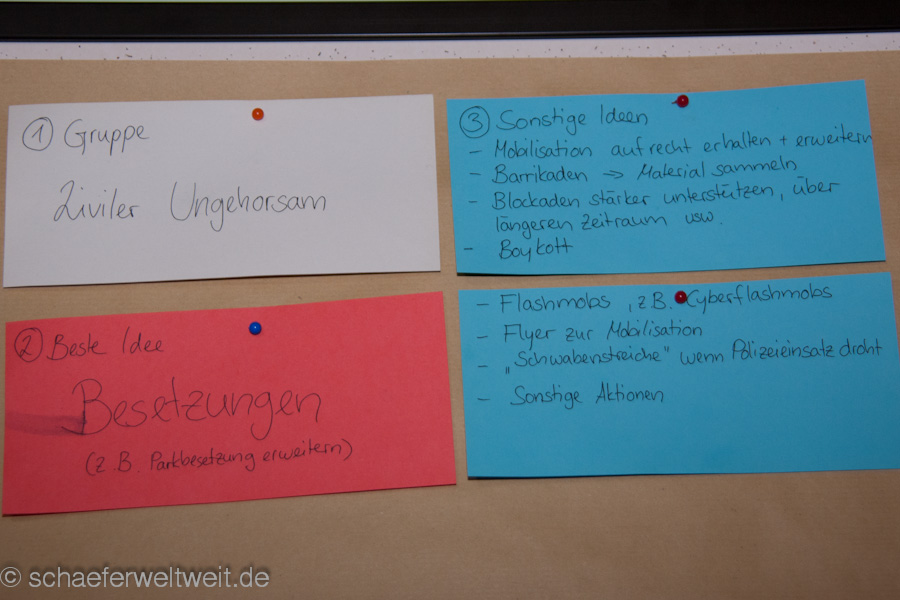 ① Gruppe
Ziviler Ungehorsam
② Beste Idee
Besetzungen
(z.B. Parkbesetzung erweitern)
③ Sonstige Ideen
- Mobilisation aufrecht erhalten + erweitern
- Barrikaden → Material sammeln
- Blockaden stärker unterstützen, über
längeren Zeitraum usw.
- Boykott
- Flashmobs, z.B. Cyberflashmobs
- Flyer zur Mobilisation
- „Schwabenstreiche" wenn Polizeieinsatz droht
- Sonstige Aktionen
© schaeferweltweit.de